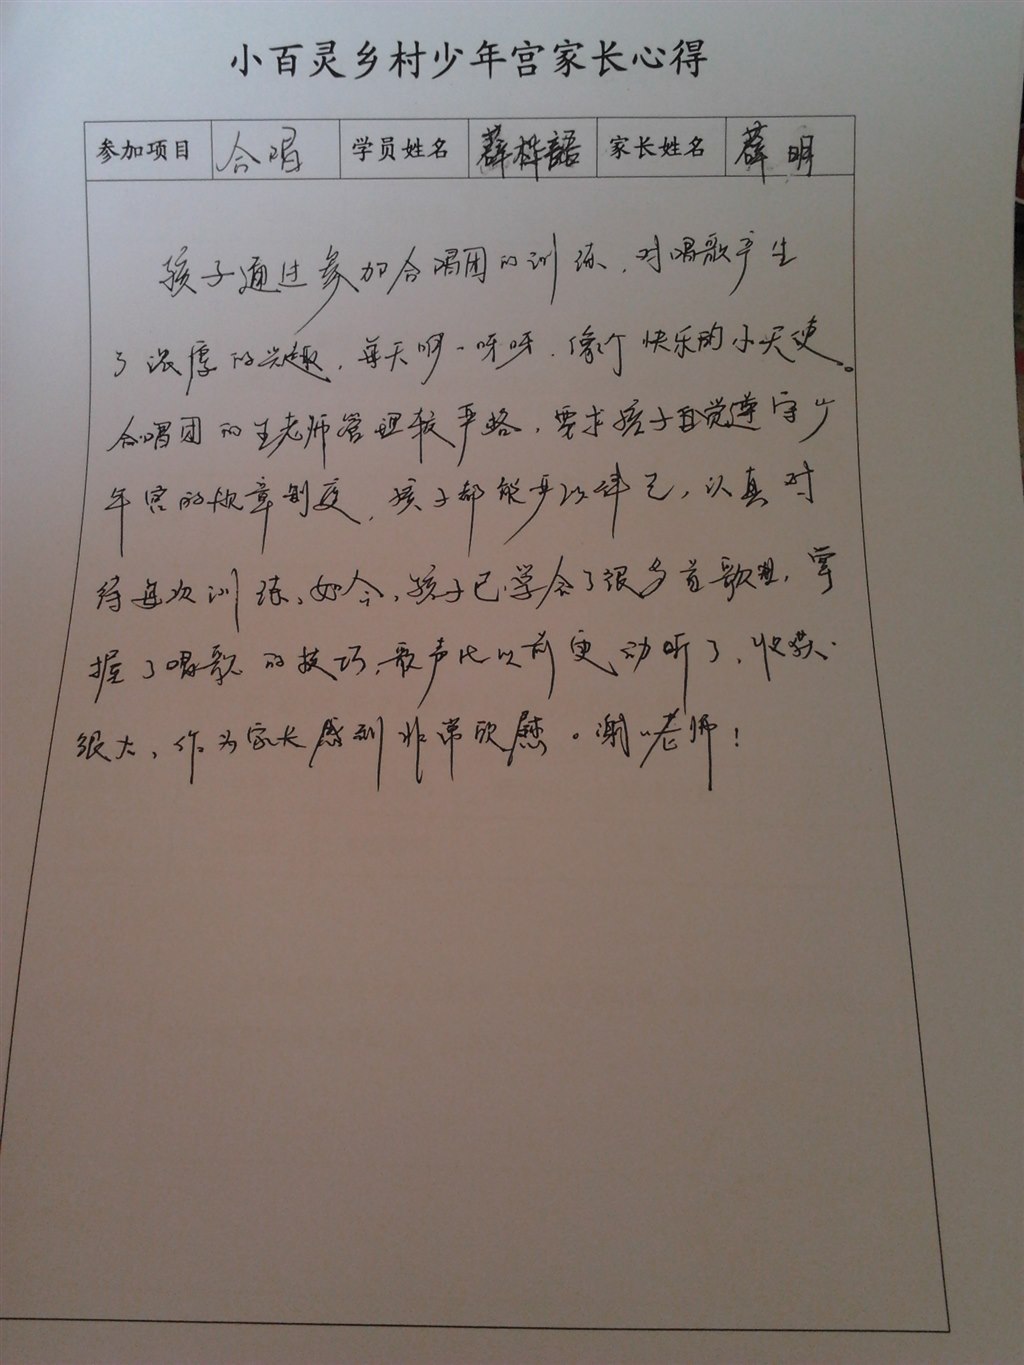 小百灵乡村少年宫家长心得
参加项目 合唱 学员姓名 薛桦語 家长姓名 薛明
孩子通过参加合唱团的训练,对唱歌产生
了浓厚的兴趣,每天啊、呀呀,像个快乐的小天使。
合唱团的王老师管理较严格,要求孩子自觉遵守少
年宫的规章制度,孩子都能严以律己,认真对
待每次训练,如今,孩子已学会了很多首歌曲,掌
握了唱歌的技巧,歌声比以前更动听了,收获
很大,作为家长感到非常欣慰。谢谢老师!